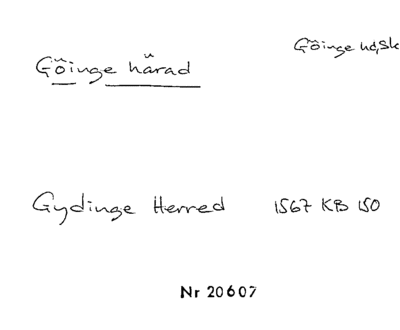 Göinge hd, Sk
Göinge härad
Gydinge Herred 1567 KB 150
Nr 20607